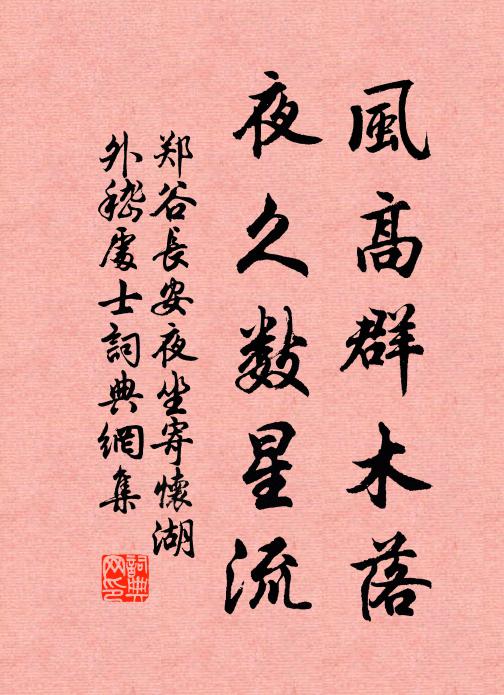 風高群木落
夜久数星流
郑谷長安夜坐寄懷湖
外嵇處士詞典網集
詞典
网印